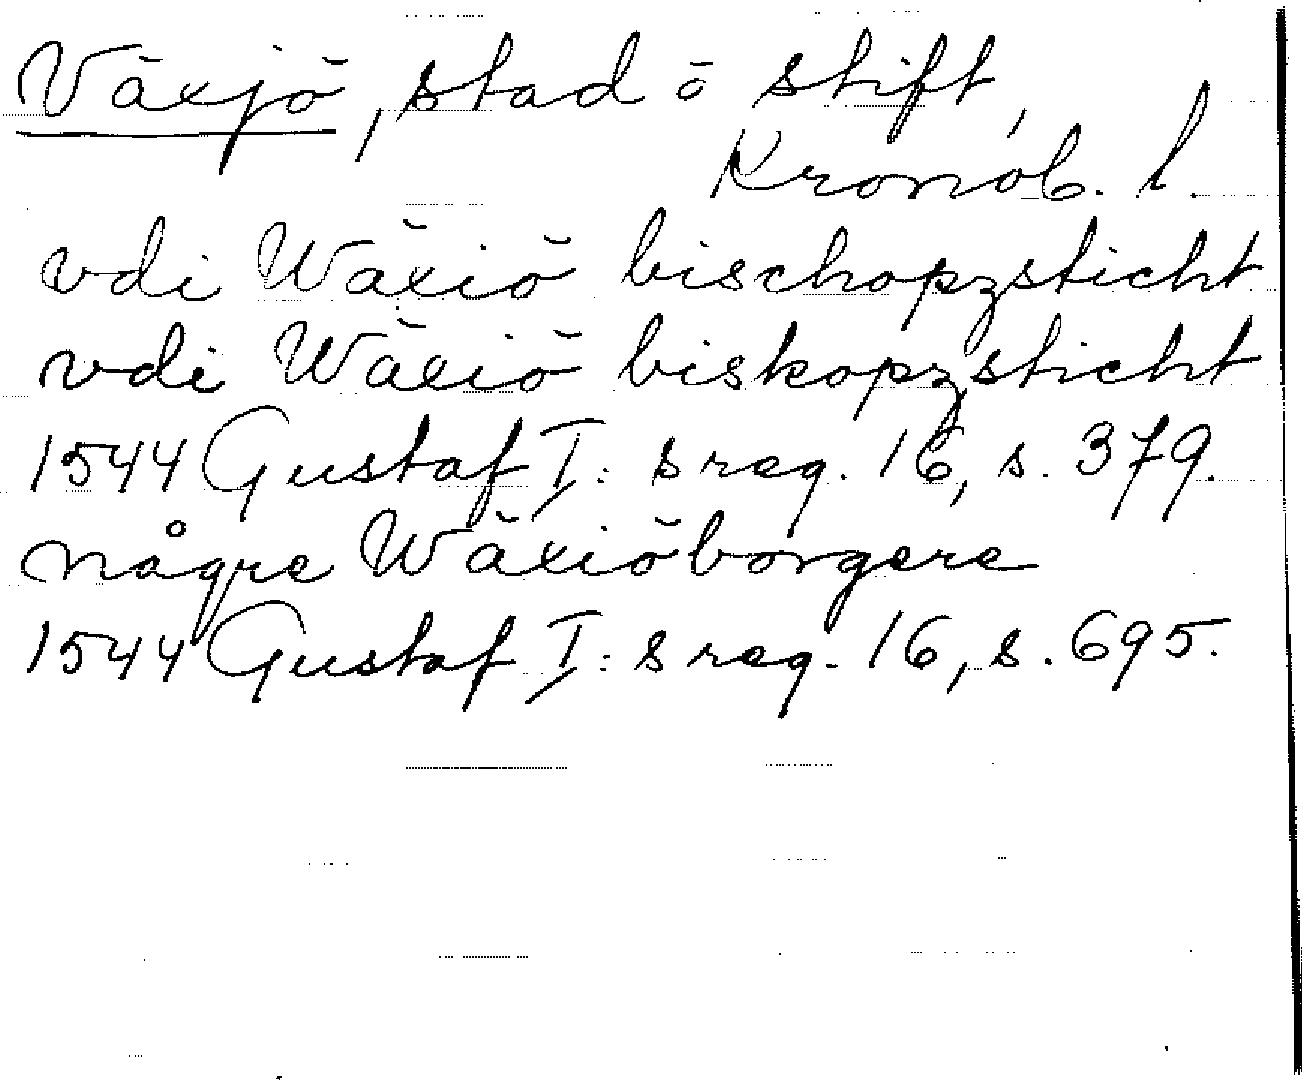 Växjö, stad ö stift,
Kronob. l.
vdi Wäxiö bischopzsticht
vdi Wäxiö biskopzsticht
1544 Gustaf I: s reg. 16, s. 379.
någre Wäxiöborgere
1544 Gustaf I: s reg. 16, s. 695.